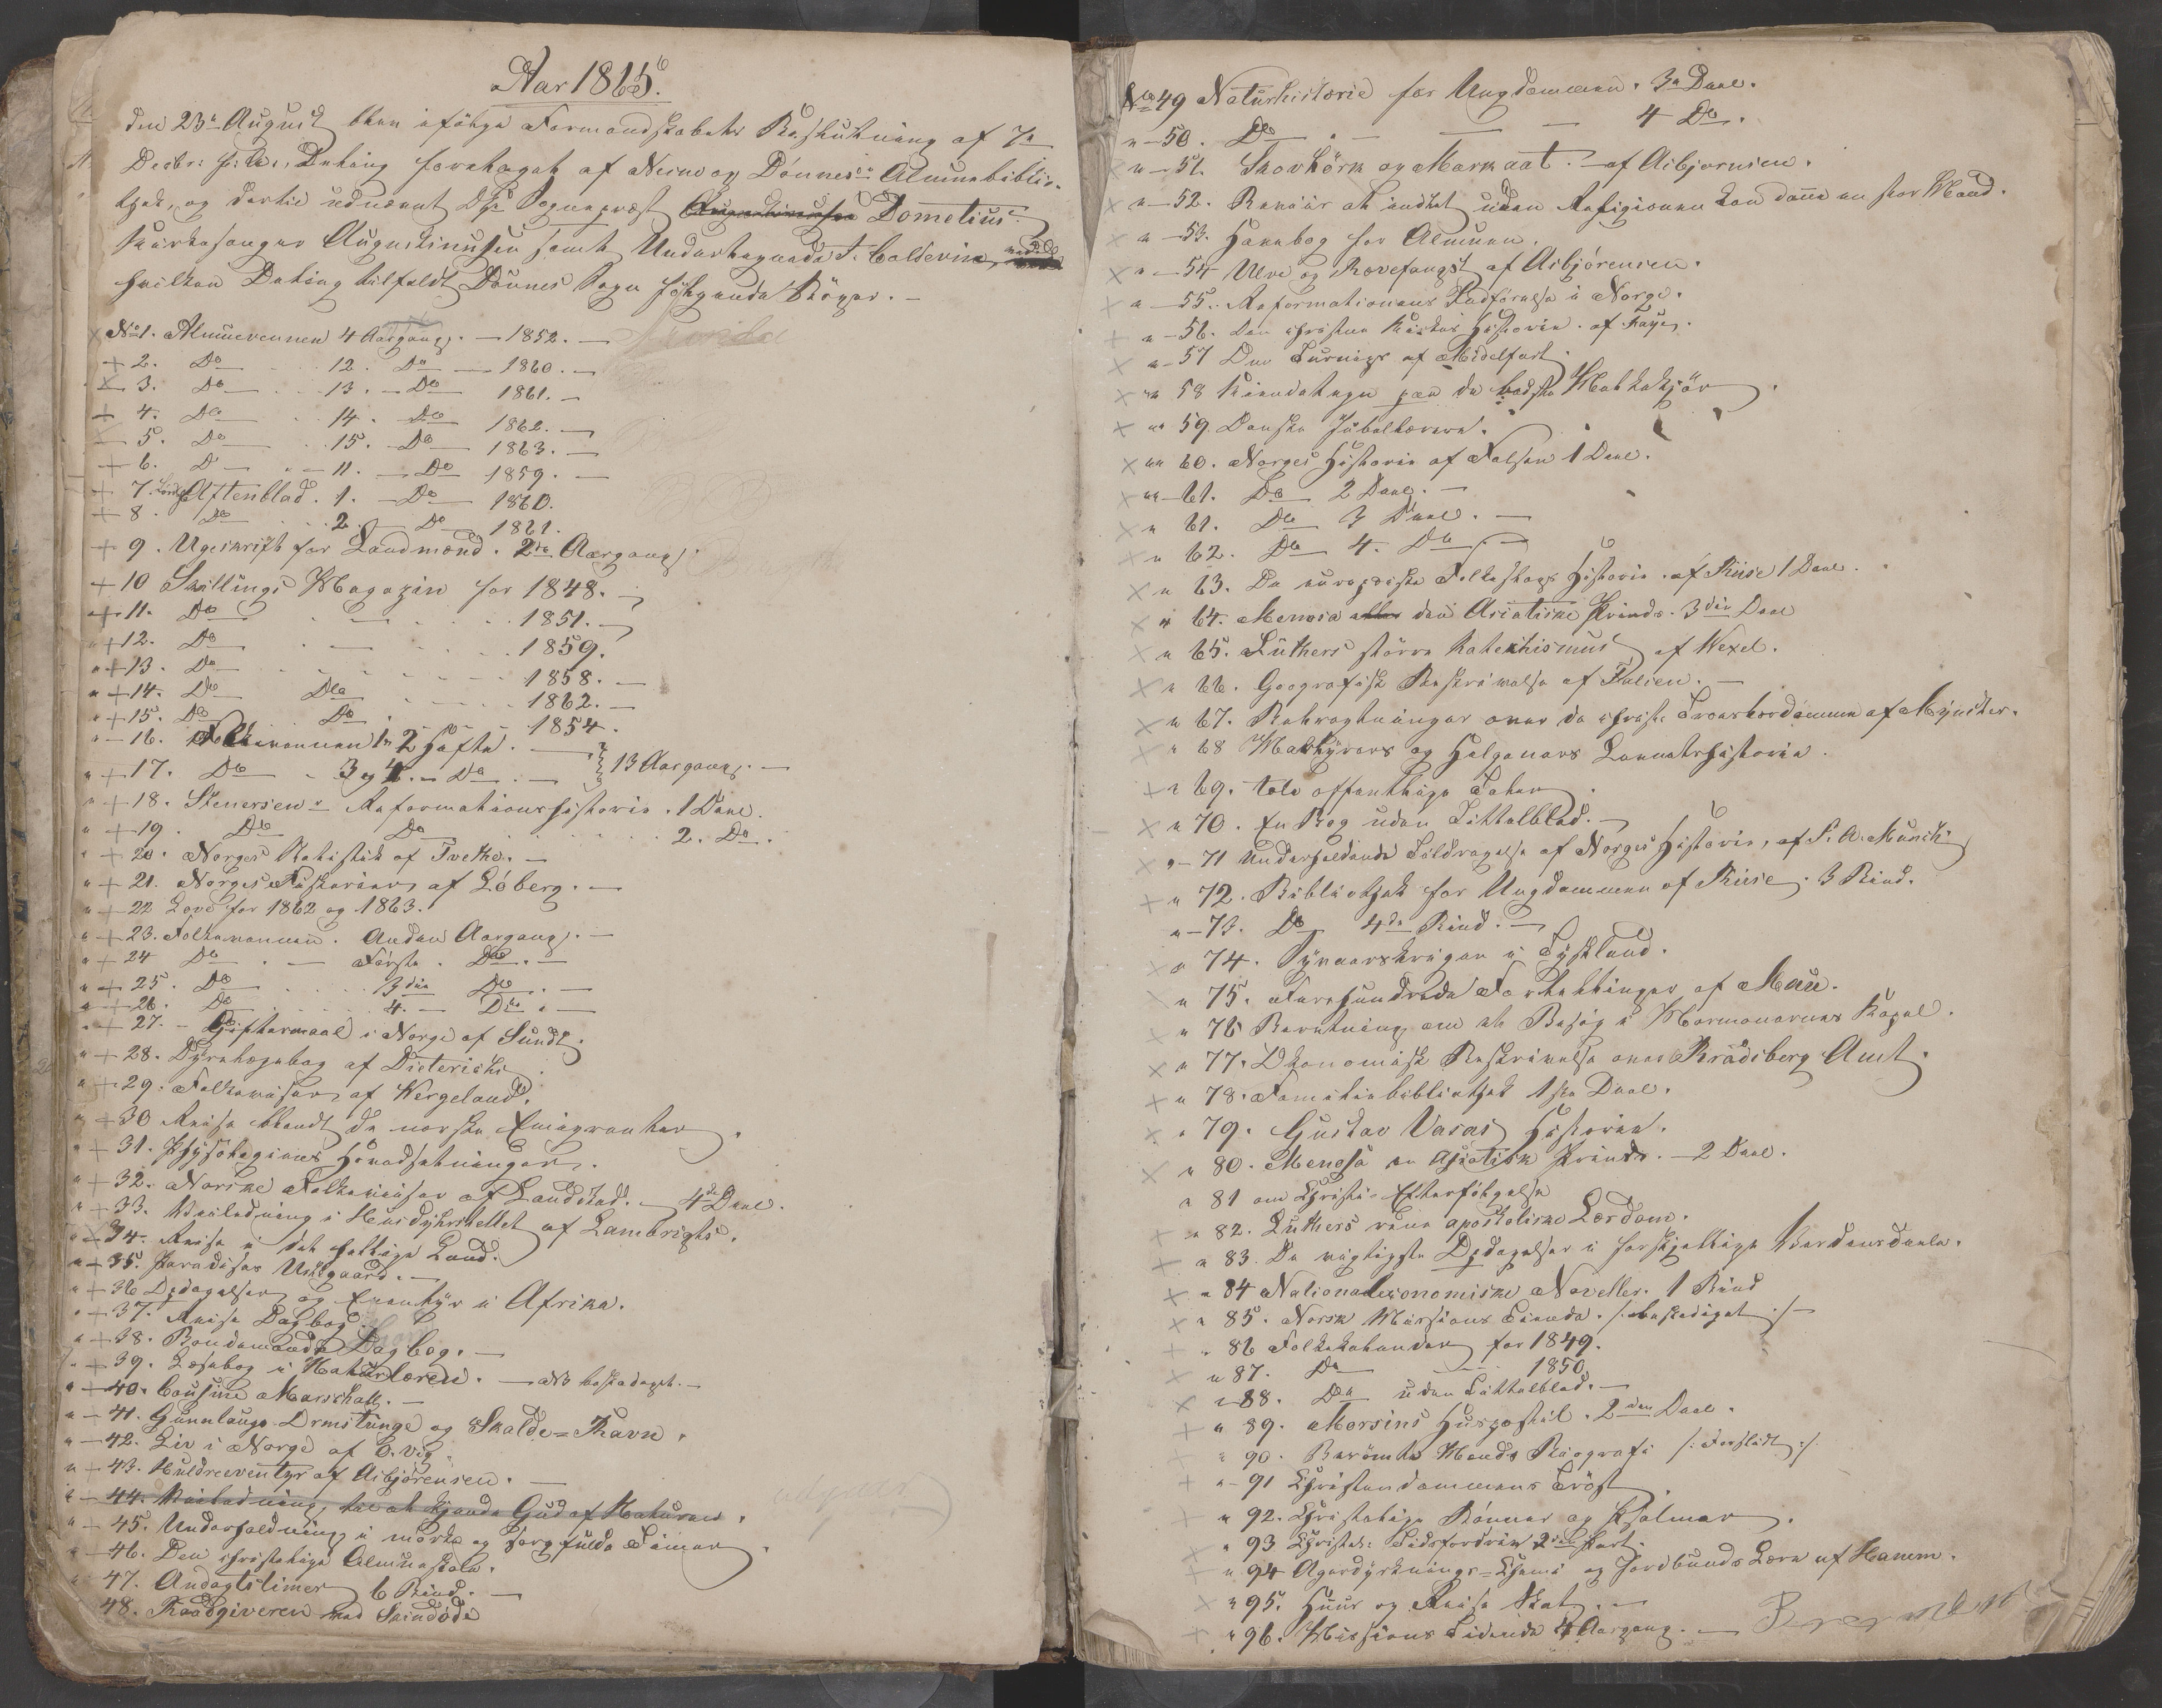 Aar 1865.
den 23de August blev ifölge Formandskabets Beslutning af 7de
Decbr: f: A:, Deling foretaget af Nesne og Dönnes's Almuebiblio-
thek, og dertil udnævnt Hr Sogneprest Dometius
Kirkesanger Augustinussen samt Undertegnede J. Coldevin,
hvilken Deling tilfaldt Dönnes Sogn fölgende Böger. -
No 1. Almuevennen 4 Aargang. - 1852. -
2. Do 12. Do - 1860. -
3. Do 13. - Do 1861. -
4. Do 14. Do 1862. -
5. Do 15. Do 1863. -
6. Do - 11. - Do 1859. -
7. Aftenblad. 1. - Do 1860.
8. Do 2. - Do 1861.
9. Ugeskrift for Landmænd. 2de Aargang.
10 Skillings Magazin for 1848. -
11. Do 1851. -
12. Do 1859.
13. Do 1858. -
14. Do Do 1862. -
15. Do Do 1854.
16. Folkevennen 1 - 2 Hefte. -
17. Do - 3 og 4. - Do. - } 13 Aargang. -
18. Stenersens Reformationshistorie. 1 Deel.
19. Do Do 2. Do.
20. Norges Statistik af Tvethe. -
21. Norges Fiskerier af Löberg. -
22 Love for 1862 og 1863.
23. Folkevennen. Anden Aargang. -
24 Do. - Förste. Do. -
25. Do 3die Do. -
26. Do 4. - Do. -
27. - Giftermaal i Norge af Sundt.
28. Dyrelægebog af Dieterichs
29. Folkeviser af Wergeland.
30 Reise blandt de norske Emigranter.
31. Physologiens Hovedsætninger.
32. Norske Folkeviser af Landstad. - 4de Deel.
33. Veiledning i Huusdyrstellet af Lambrigts.
34. Reise i det hellige Land.
35. Paradisets Urtegaard. -
36 Opdagelser og Eventyr i Afrika.
37. Reise Dagbog.
38. Bondemands Dagbog. -
39. Læsebog i Naturlæren. - NB beskadiget. -
40. Cousine Marschall. -
41. Gunnlaugs Ormstunge og Skalde=Ravn.
42. Liv i Norge af O. Vig
43. Huldreeventyr af Asbjörensen. -
44. Veiledning, til at kjende Gud af Naturen.
45. Underholdning i mörke og sorgfulde Timer.
46. Den christelige Almueskole.
47. Andagtstimer 6 Bind. -
48. Raadgiveren ved Skindöde
No 49 Naturhistorie for Ungdommen. 3de Deel.
" - 50. Do. - 4 Do.
" - 51. Skovbörk og Markaat. - af Asbjornsen.
" - 52. Beviis at indtet uden Religionen kan dane en stor Mand.
" - 53. Havebog for Almuen.
" - 54 Ulve og Rævefangst af Asbjörensen.
" - 55. Reformationens Indförelse i Norge.
" - 56. Den christne Kirkes Historie. af Faye.
" - 57 Om Turnips af Midelfart.
" 58 Kiendetegn paa de bedste Melkekjör.
" 59. Danske Jubellærere.
" 60. Norges Historie af Falsen 1 Deel.
" - 61. Do 2 Deel. -
" 61. Do 3 Deel. -
" 62. Do 4. Do. -
" 63. De europæiske Folkeslags Historie. af Riise 1 Deel.
" 64. Menosa den Asiatiske Prinds. 3die Deel
" 65. Luthers större Katekhismus af Wexel.
" 66. Geografisk Beskrivelse af Italien. -
" 67. Betragtninger over de christ. Troeslærdomme af Mynster.
" 68 Martyrers og Helgeners Levnetshistorie.
" 69. tolv offentlige Taler.
" 70. En Bog uden Tittelblad. -
" - 71 Underholdende Tildragelse af Norges Historie, af P. A. Munch.
" 72. Bibliothek for Ungdommen af Riise. 3 Bind.
" - 73. Do 4de Bind. -
" 74. Syvaarskrigen i Tyskland.
" 75. Firehundrede Fortellinger af Mau.
" 76 Beretning om et Besög i Mormonernes Kapel.
" 77. Ökonomisk Beskrivelse over Bradsberg Amt.
" 78. Familiebibliothek 1ste Deel.
" 79. Gustav Vasas Historie.
" 80. Menosa en Asiatisk Prinds. - 2 Deel.
" 81 om Christi Efterfölgelse
" 82. Luthers rene apostoliske Lærdom.
" 83. De vigtigste Opdagelser i forskjellige Verdensdeele.
" 84 Nationaløconomiske Noveller. 1 Bind
" 85. Norsk Missions Tidende. /: beskadiget :/ -
" 86 Folkekalender for 1849.
" 87. Do 1850.
" 88. Do uden Tittelblad. -
" 89. Morsins Huspostil. 2den Deel.
" 90. Berömte Mænds Biografi /: Forslidt :/
" - 91 Christendommens Tröst.
" 92. Christelige Bönner og Psalmer.
" 93 Christel: Tidsfordriv 2den Part.
" 94 Agerdyrknings=Chemi og Jordbunds Lære af Hanem.
" 95. Huus og Reise Skat. -
" 96. Missions Tidende 4 Aargang. -